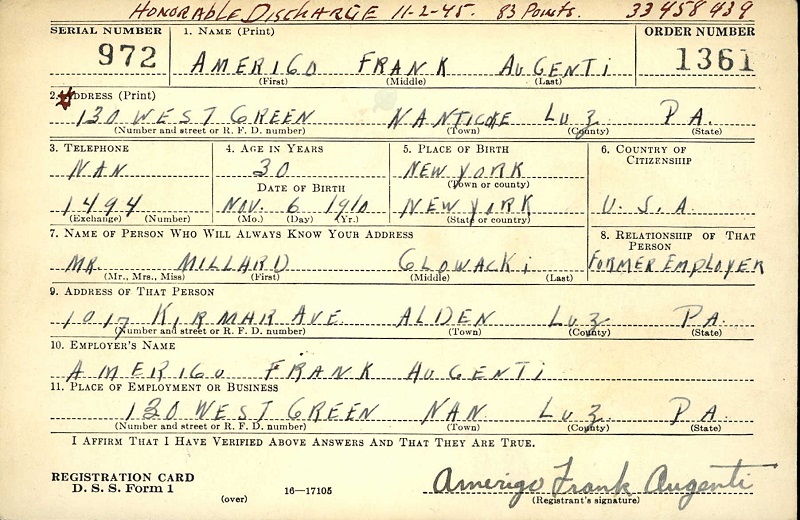 HONORABLE DISCHARGE 11-2-45. 83 Points. 33458439
SERIAL NUMBER 1. NAME (Print) ORDER NUMBER
972 AMERIGO FRANK AUGENTI 1361
(First) (Middle) (Last)
2. ADDRESS (Print)
130 WEST GREEN NANTICOKE LUZ PA.
(Number and street or R. F. D. number) (Town) (County) (State)
3. TELEPHONE 4. AGE IN YEARS 5. PLACE OF BIRTH 6. COUNTRY OF CITIZENSHIP
NAN 30 NEW YORK
DATE OF BIRTH (Town or county)
1494 NOV. 6 1910 NEW YORK U. S. A.
(Exchange) (Number) (Mo.) (Day) (Yr.) (State or country)
7. NAME OF PERSON WHO WILL ALWAYS KNOW YOUR ADDRESS 8. RELATIONSHIP OF THAT PERSON
MR. MILLARD GLOWACKI FORMER EMPLOYER
(Mr., Mrs., Miss) (First) (Middle) (Last)
9. ADDRESS OF THAT PERSON
1017 KIRMAR AVE ALDEN LUZ PA.
(Number and street or R. F. D. number) (Town) (County) (State)
10. EMPLOYER'S NAME
AMERIGO FRANK AUGENTI
11. PLACE OF EMPLOYMENT OR BUSINESS
130 WEST GREEN NAN LUZ PA.
(Number and street or R. F. D. number) (Town) (County) (State)
I AFFIRM THAT I HAVE VERIFIED ABOVE ANSWERS AND THAT THEY ARE TRUE.
REGISTRATION CARD
D. S. S. Form 1 (over) 16—17105 Amerigo Frank Augenti
(Registrant's signature)